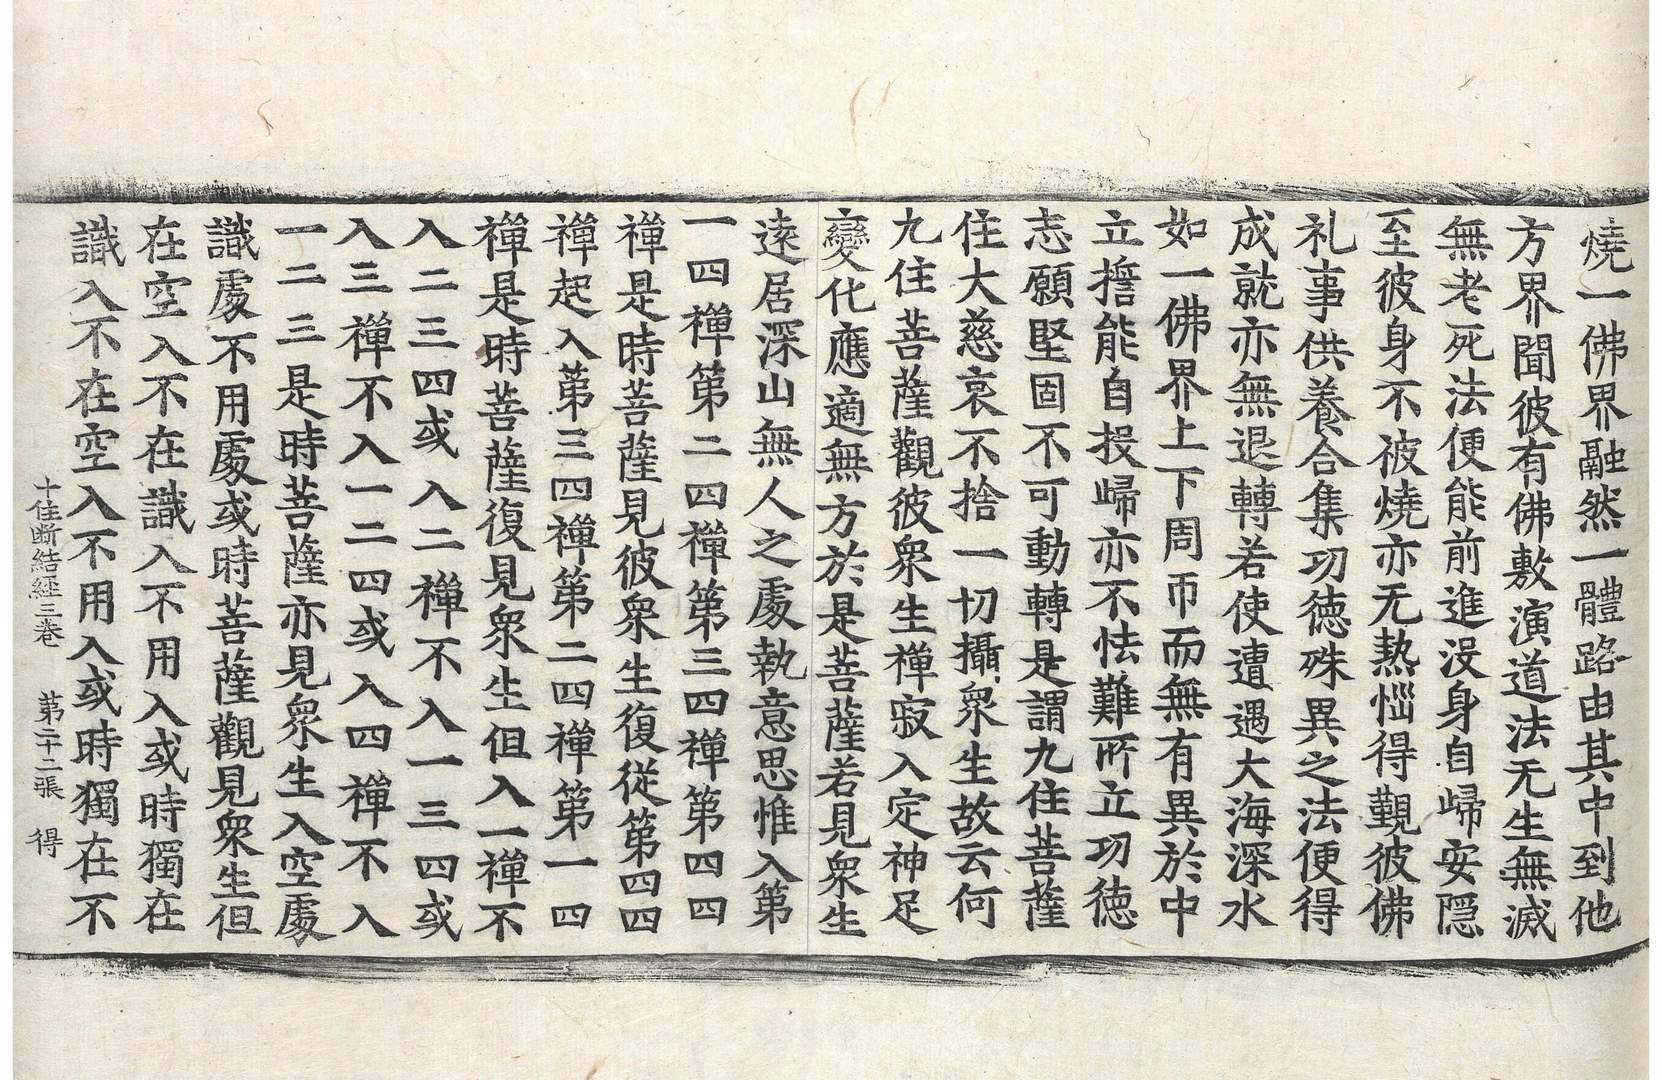 燒一佛界融然一體路由其中到他
方界聞彼有佛敷演道法无生無滅
無老死法便能前進沒身自歸安隱
至彼身不被燒亦无熱惱得覲彼佛
礼事供養合集功德殊異之法便得
成就亦無退轉若使遭遇大海深水
如一佛界上下周帀而無有異於中
立擔能自投歸亦不怯難所立功德
志願堅固不可動轉是謂九住菩薩
住大慈哀不捨一切攝衆生故云何
九住菩薩觀彼衆生禪寂入定神足
變化應適無方於是菩薩若見衆生
遠居深山無人之處執意思惟入第
一四禪第二四禪第三四禪第四四
禪是時菩薩見彼衆生復從第四四
禪起入第三四禪第二四禪第一四
禪是時菩薩復見衆生但入一禪不
入二三四或入二禪不入一三四或
入三禪不入一二四或入四禪不入
一二三是時菩薩亦見衆生入空處
識處不用處或時菩薩觀見衆生但
在空入不在識入不用入或時獨在
識入不在空入不用入或時獨在不
十住斷結經三卷 第二十二張 得